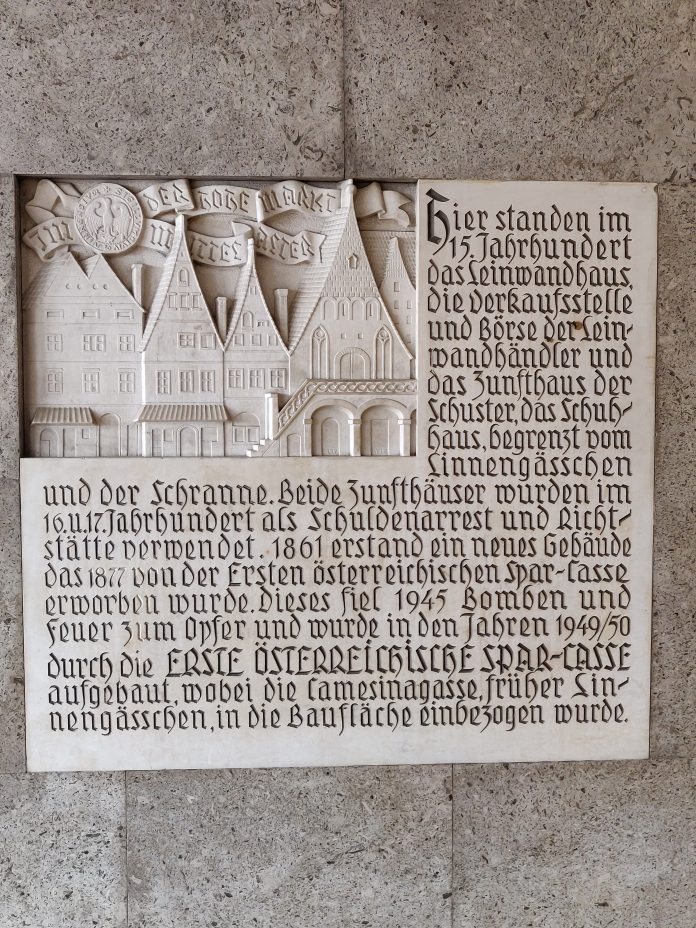 DER HOHE MARKT
IM MITTELALTER
Hier standen im
15. Jahrhundert
das Leinwandhaus,
die Verkaufsstelle
und Börse der Lein-
wandhändler und
das Zunfthaus der
Schuster, das Schuh-
haus, begrenzt vom
Linnengässchen
und der Schranne. Beide Zunfthäuser wurden im
16.u.17 Jahrhundert als Schuldenarrest und Richt-
stätte verwendet. 1861 erstand ein neues Gebäude
das 1877 von der Ersten österreichischen Spar-Casse
erworben wurde. Dieses fiel 1945 Bomben und
Feuer zum Opfer und wurde in den Jahren 1949/50
durch die ERSTE ÖSTERREICHISCHE SPAR-CASSE
aufgebaut, wobei die Camesinagasse, früher Lin-
nengässchen, in die Baufläche einbezogen wurde.